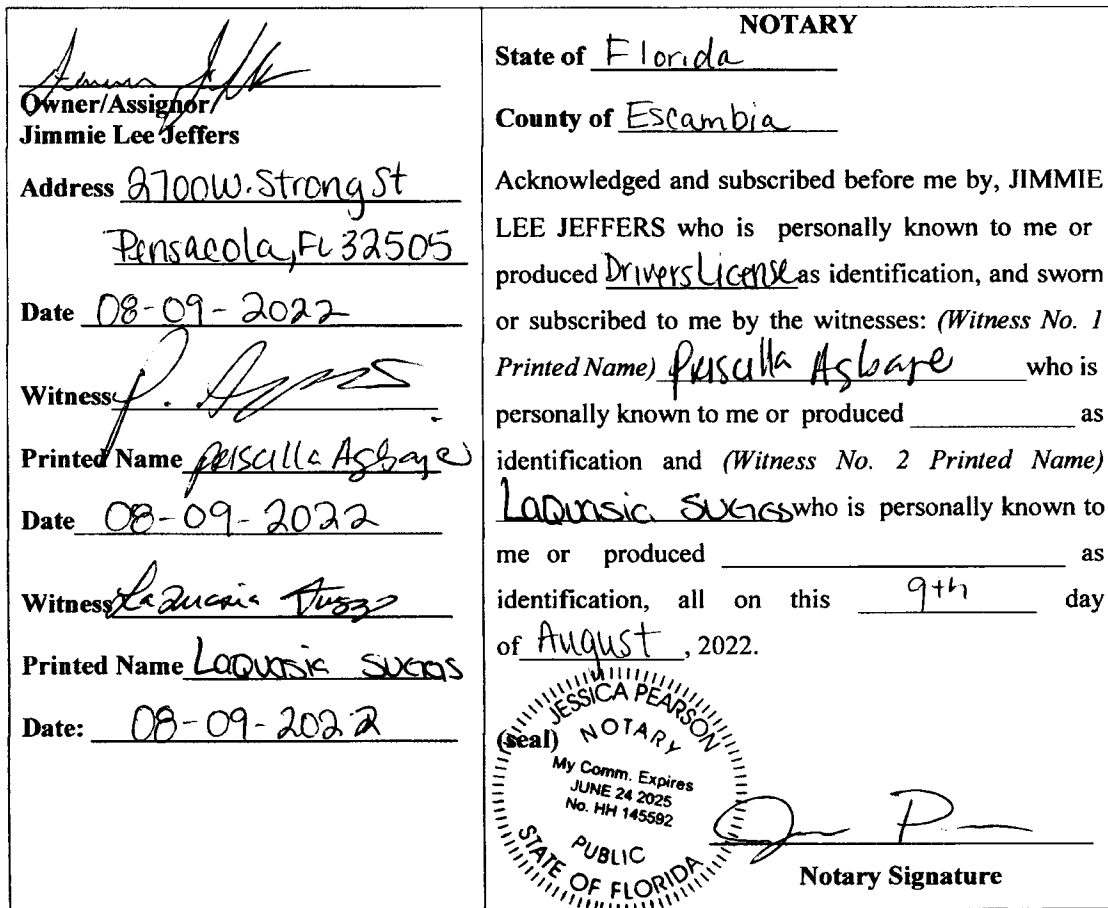 Owner/Assignor
Jimmie Lee Jeffers
Address 2700 W. Strong St
Pensacola, FL 32505
Date 08-09-2022
Witness P.
Printed Name Priscilla Agbaje
Date 08-09-2022
Witness LaQuasia Suggs
Printed Name LaQuasia Suggs
Date: 08-09-2022
NOTARY
State of Florida
County of Escambia
Acknowledged and subscribed before me by, JIMMIE
LEE JEFFERS who is personally known to me or
produced Drivers License as identification, and sworn
or subscribed to me by the witnesses: (Witness No. 1
Printed Name) Priscilla Agbaje who is
personally known to me or produced as
identification and (Witness No. 2 Printed Name)
LaQuasia Suggs who is personally known to
me or produced as
identification, all on this 9th day
of August, 2022.
(seal)
JESSICA PEARSON
NOTARY
My Comm. Expires
JUNE 24 2025
No. HH 145592
PUBLIC
STATE OF FLORIDA
Notary Signature